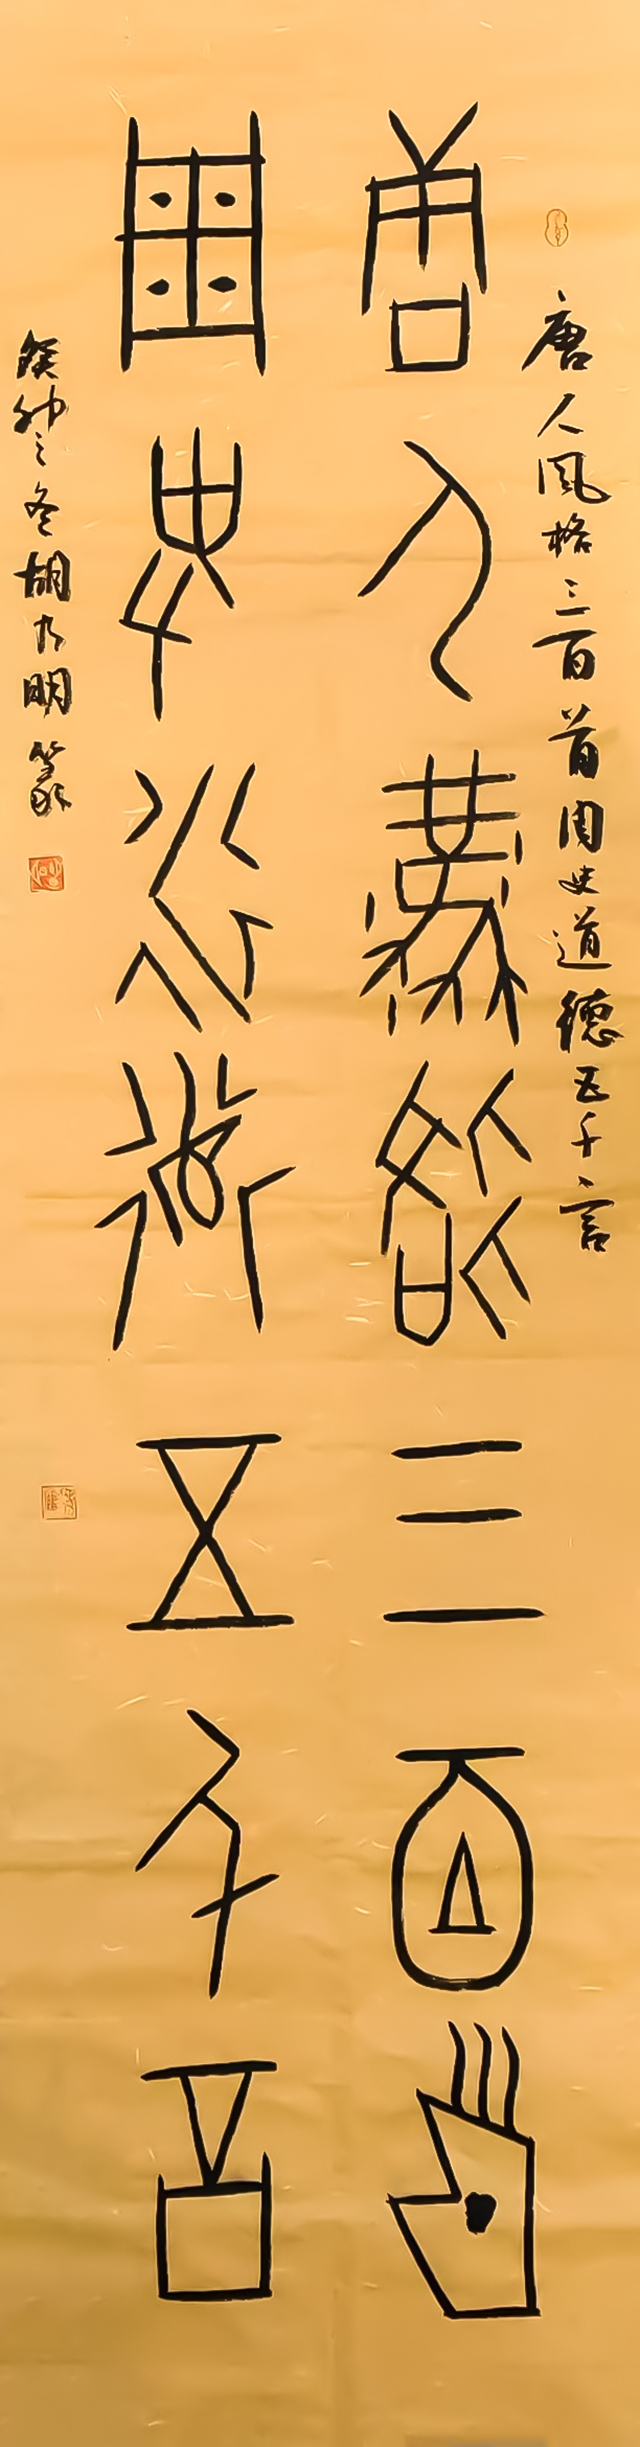 唐人風格三百首周史道德五千言
唐人風格三百首
周史道德五千言
癸卯之冬胡明篆